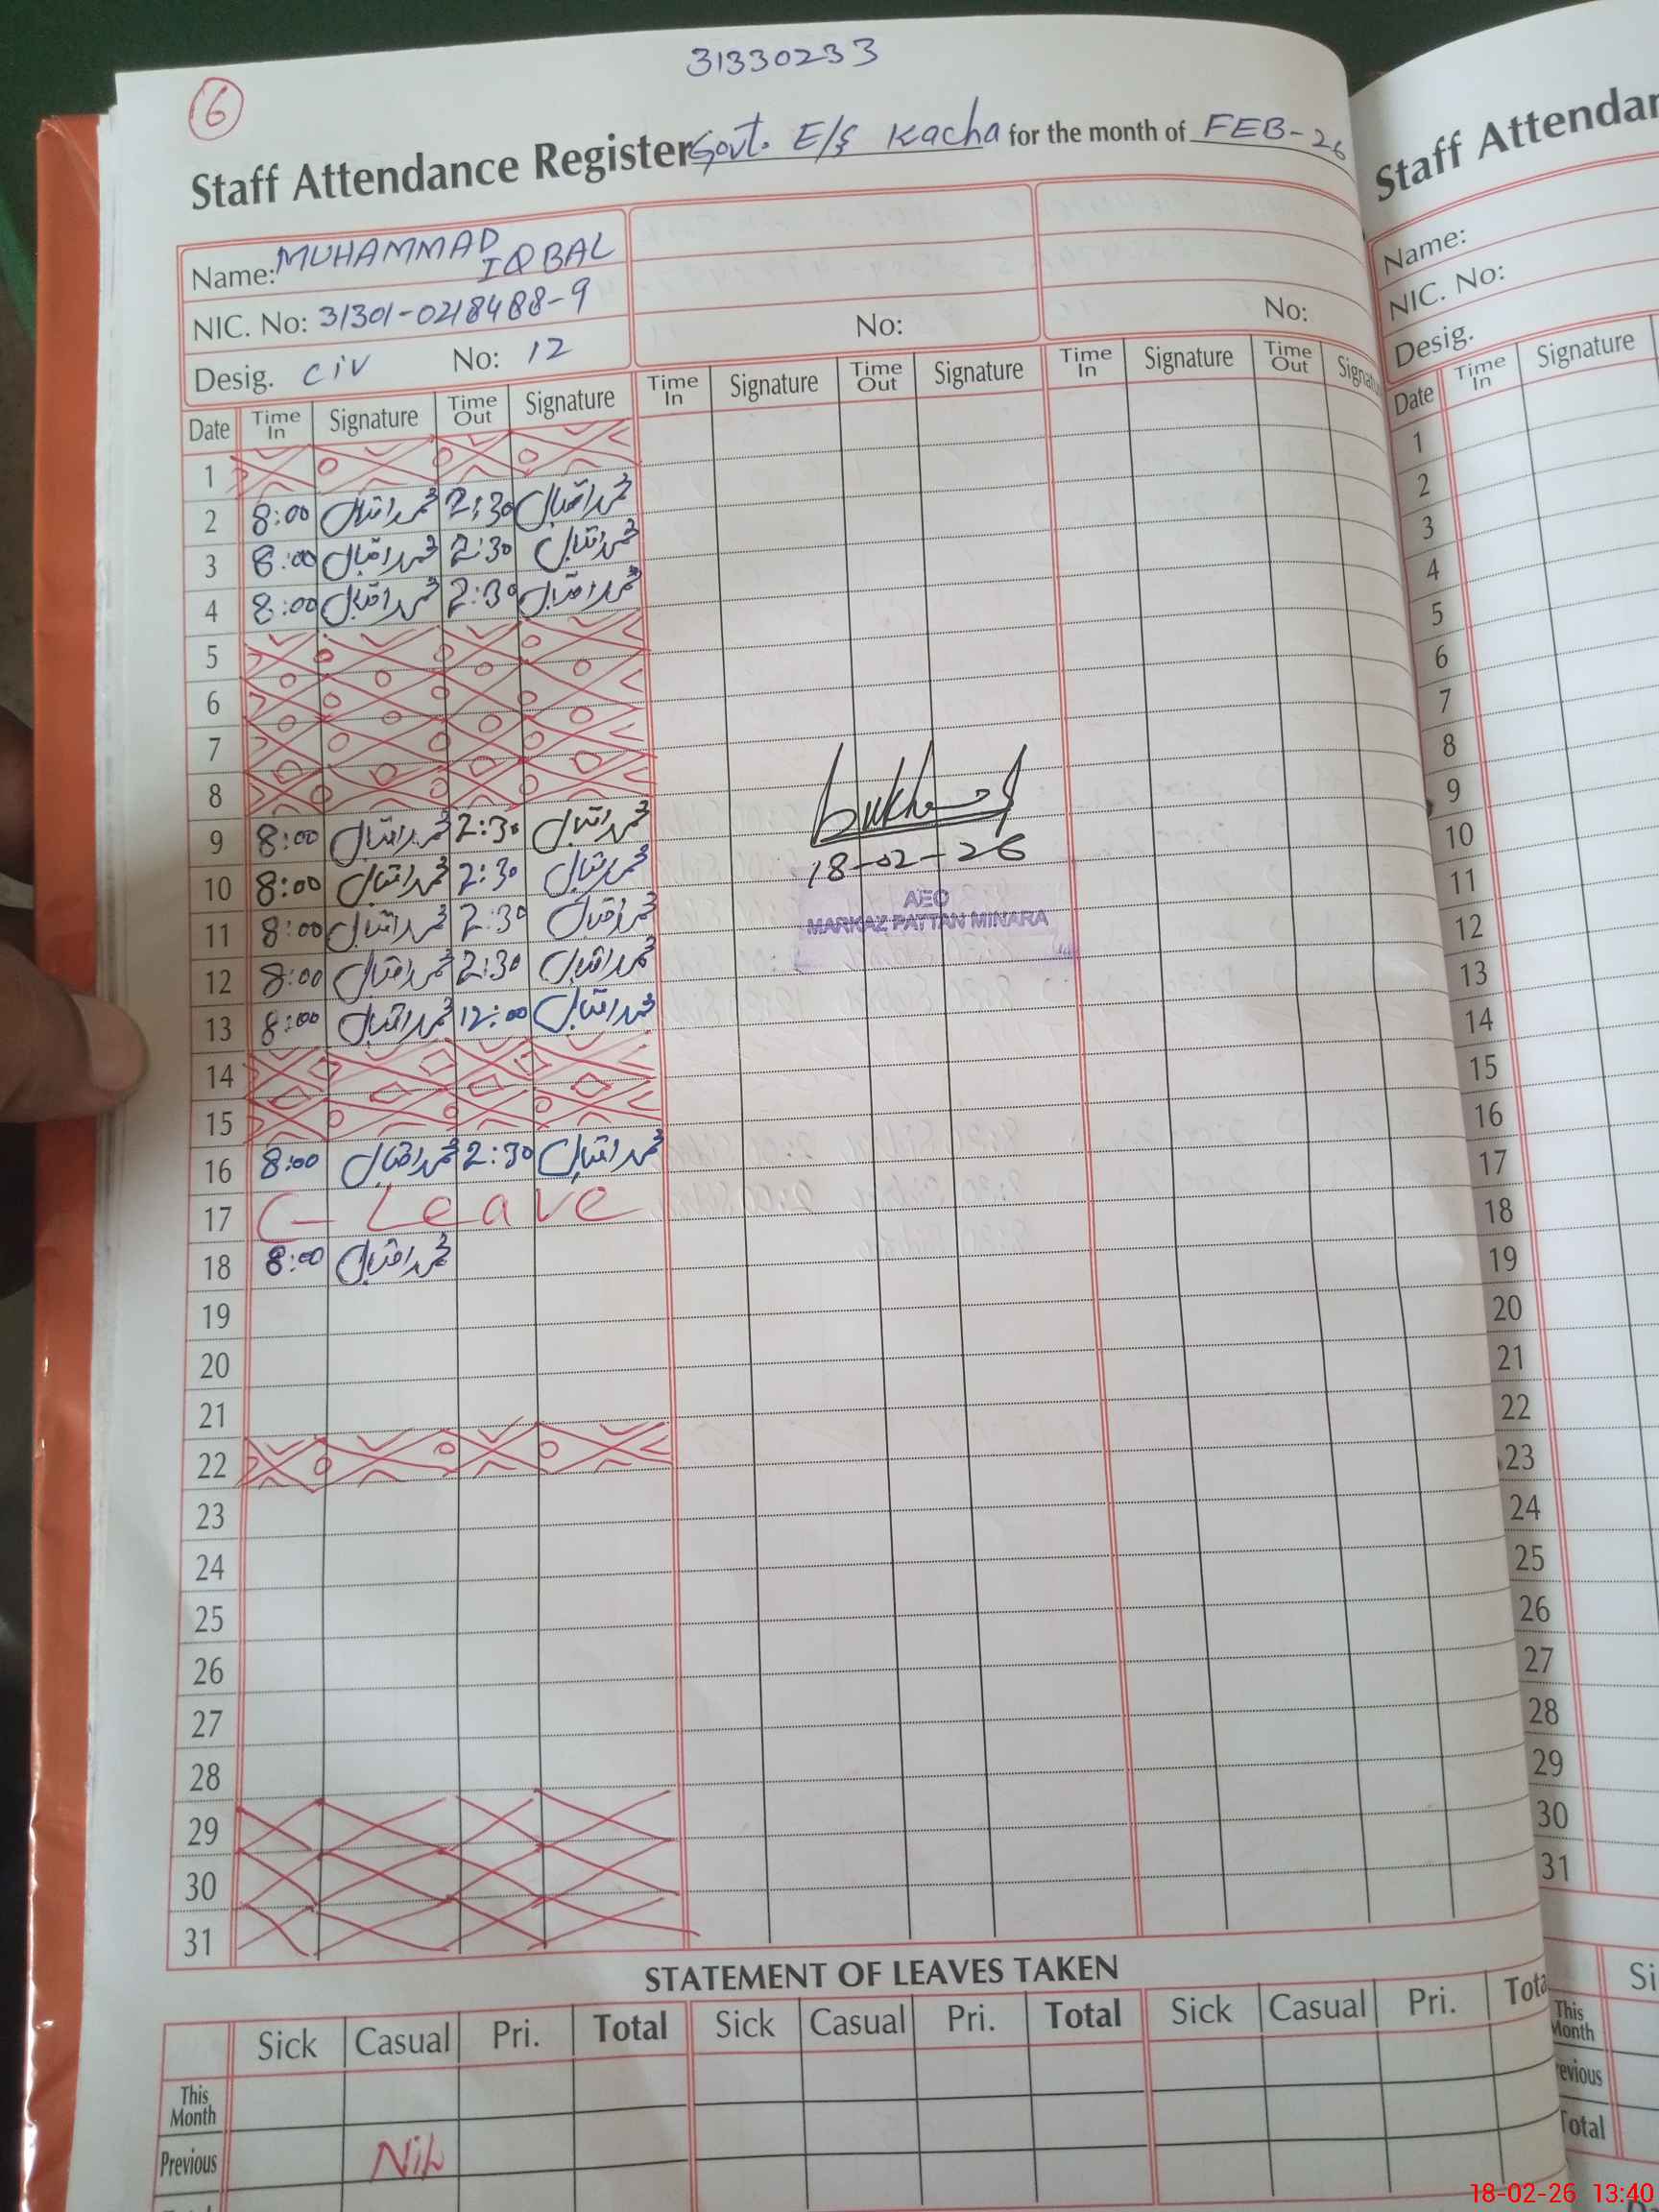 31330233
6
Staff Attendance Register Govt. E/S Kacha for the month of FEB-26
Name: MUHAMMAD IQBAL
NIC. No: 31301-0218488-9
No: No:
Desig. CiV No: 12
Date Time In Signature Time Out Signature Time In Signature Time Out Signature Time In Signature Time Out Signatu
1
2 8:00 محمد اقبال 2:30 محمد اقبال
3 8:00 محمد اقبال 2:30 محمد اقبال
4 8:00 محمد اقبال 2:30 محمد اقبال
5
6
7
8
9 8:00 محمد اقبال 2:30 محمد اقبال
10 8:00 محمد اقبال 2:30 محمد اقبال
11 8:00 محمد اقبال 2:30 محمد اقبال
12 8:00 محمد اقبال 2:30 محمد اقبال
13 8:00 محمد اقبال 12:00 محمد اقبال
14
15
16 8:00 محمد اقبال 2:30 محمد اقبال
17 C-Leave
18 8:00 محمد اقبال
19
20
21
22
23
24
25
26
27
28
29
30
31
18-02-26
AEO
MARKAZ PATTAN MINARA
STATEMENT OF LEAVES TAKEN
Sick Casual Pri. Total Sick Casual Pri. Total Sick Casual Pri. Tota
This Month
Previous Nil
Staff Attendar
Name:
NIC. No:
Desig.
Date Time In Signature
1
2
3
4
5
6
7
8
9
10
11
12
13
14
15
16
17
18
19
20
21
22
23
24
25
26
27
28
29
30
31
Si
This Month
evious
Total
18-02-26 13:40